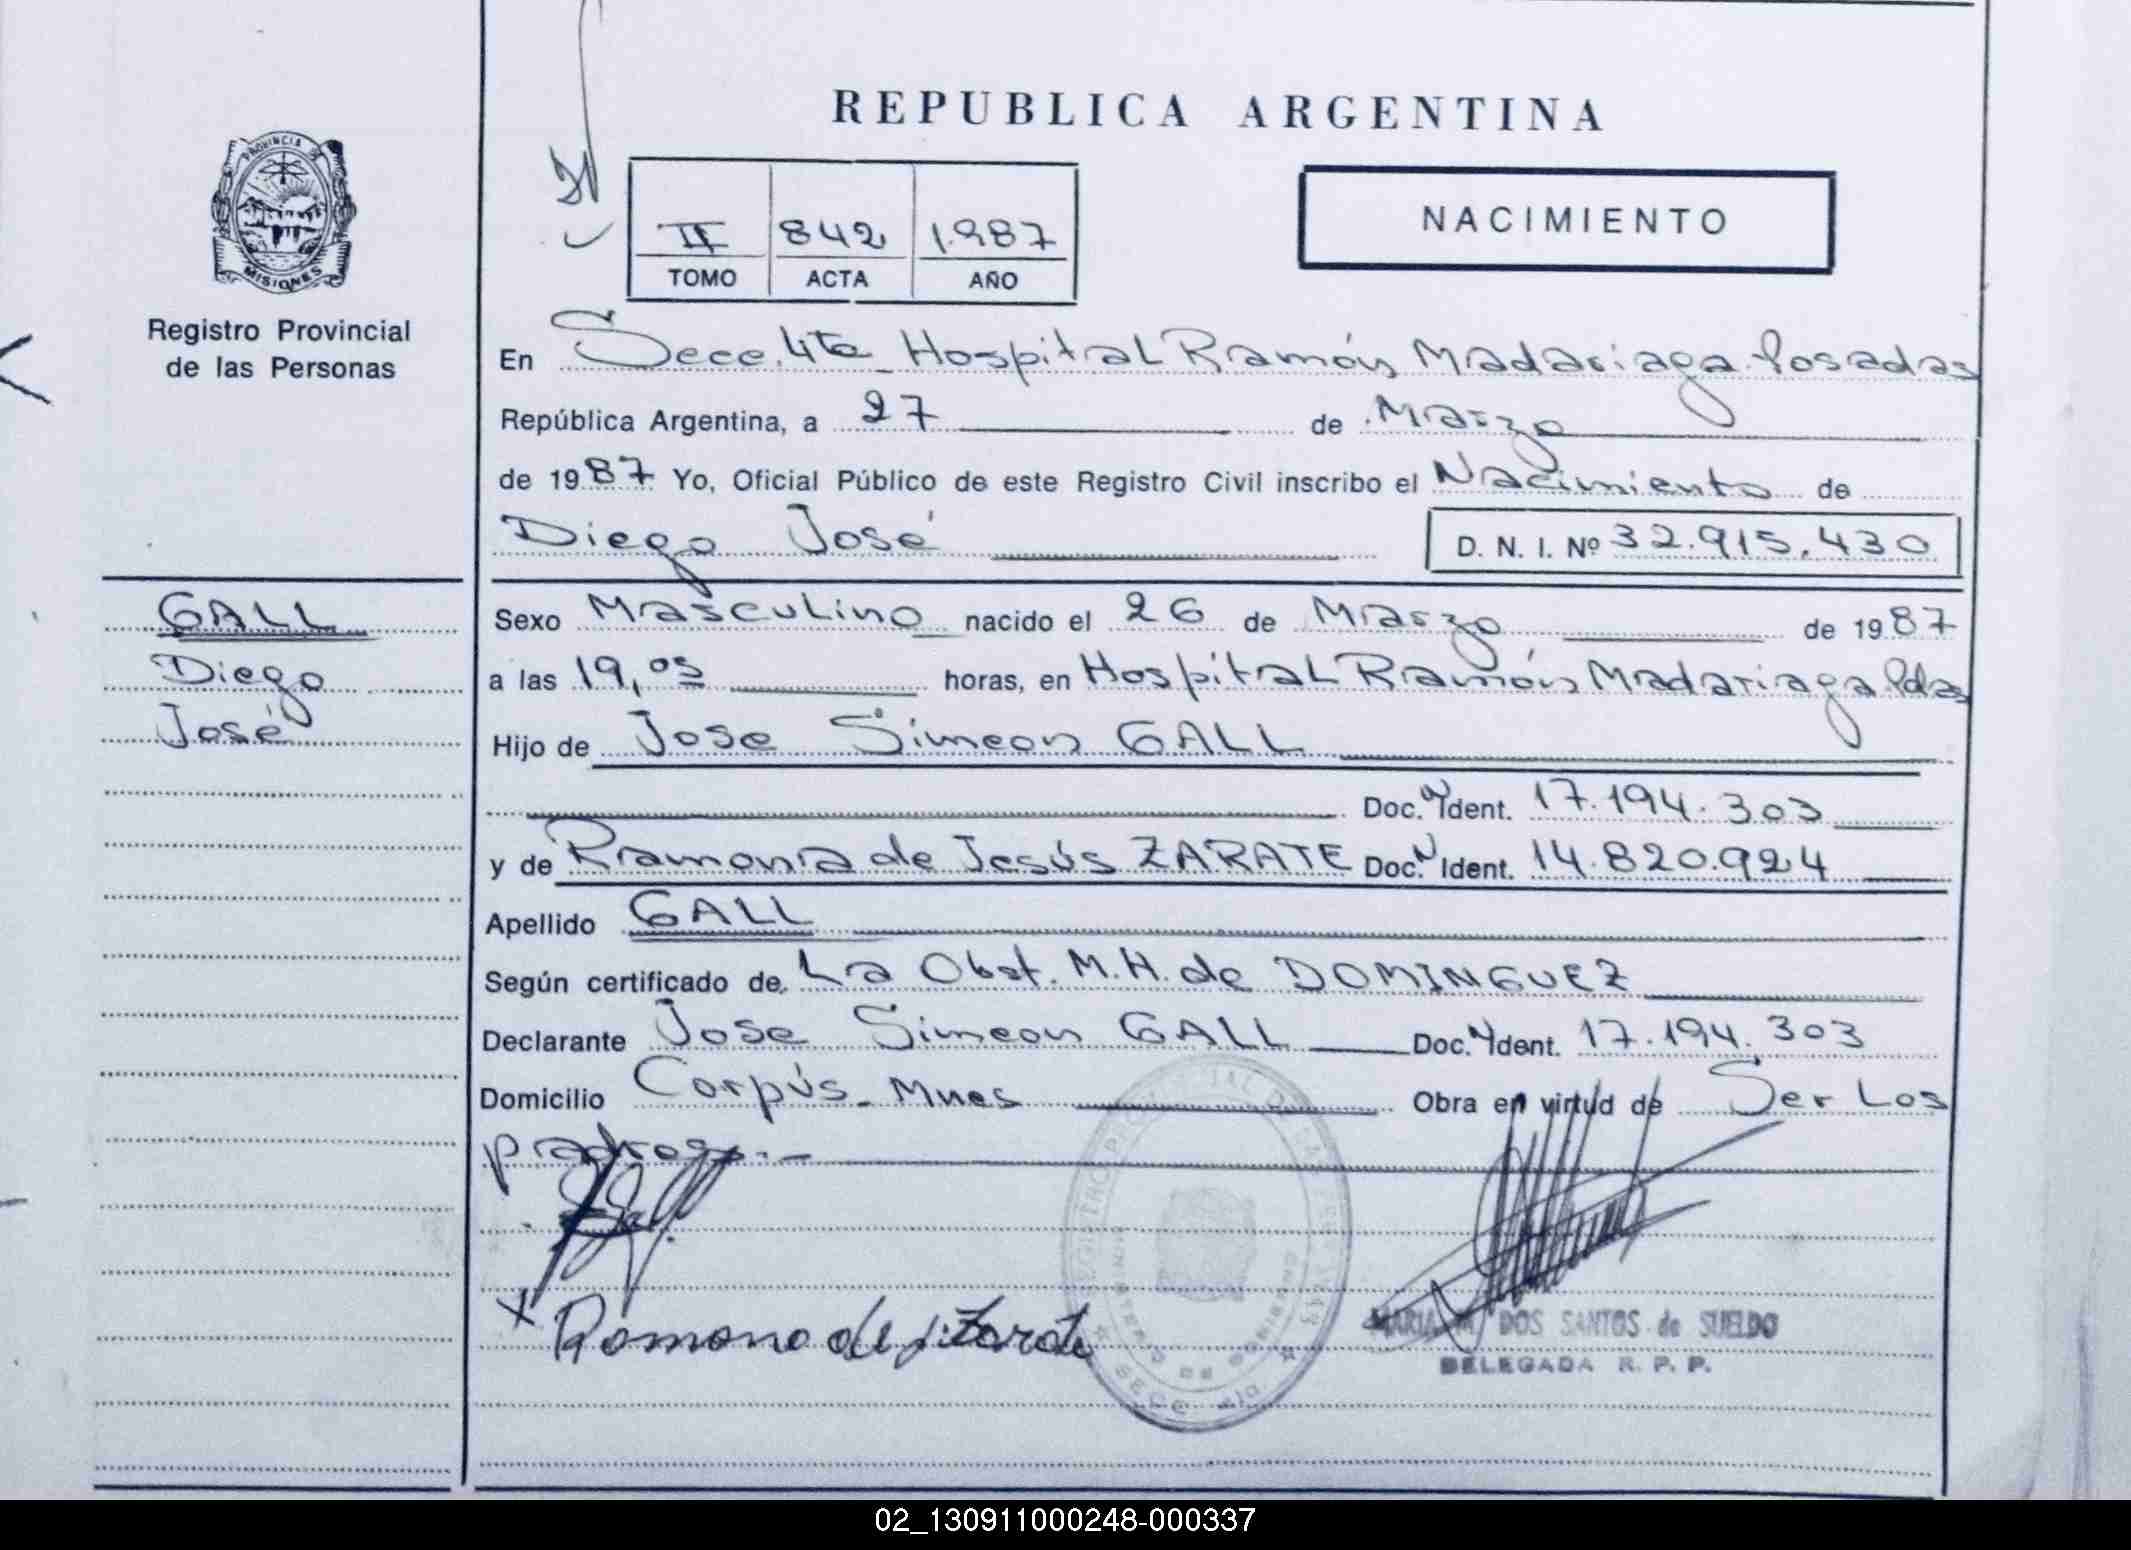 REPUBLICA ARGENTINA
PROVINCIA DE
MISIONES
Registro Provincial
de las Personas
II 842 1.987
TOMO ACTA AÑO
NACIMIENTO
En Secc. 4ta Hospital Ramón Madariaga Posadas
República Argentina, a 27 de Marzo
de 1987 Yo, Oficial Público de este Registro Civil inscribo el Nacimiento de
Diego José D. N. I. Nº 32.915.430
GALL
Diego
José
Sexo Masculino nacido el 26 de Marzo de 1987
a las 19,05 horas, en Hospital Ramón Madariaga Pdas
Hijo de Jose Simeon GALL
Doc. N Ident. 17.194.303
y de Ramona de Jesús ZARATE Doc. N Ident. 14.820.924
Apellido GALL
Según certificado de La Obst. M.H. de DOMINGUEZ
Declarante Jose Simeon GALL Doc. N Ident. 17.194.303
Domicilio Corpús - Mnes Obra en virtud de Ser Los
padres.-
x Ramona de j. Zarate
MARIA M. DOS SANTOS de SUELDO
DELEGADA R. P. P.
02_130911000248-000337